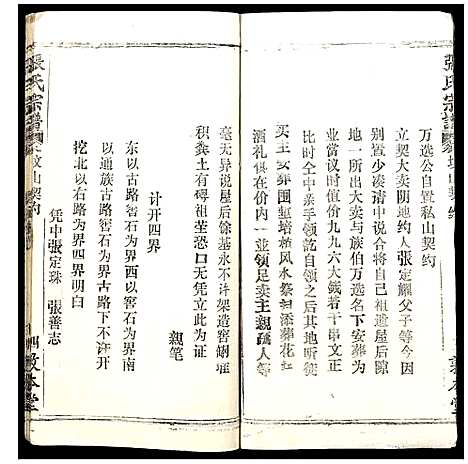 張氏宗譜
墳山契約
萬选公自置私山契約
立契大卖阴地約人張定耀父子等今因
别置少凑清中说合将祖遗屋后隙
地一所出大卖与族伯万选名下安葬为
業當议时值价九九六大钱若干串文正
比时仝中亲手领讫自领之后其地听从
买主安葬围堑培植风水祭扫添葬花红
酒礼俱在价内一並领足卖主親疏人等
毫无异说屋后馀基永不许架造窨
积粪土有碍祖茔恐口无凭立此为证
親笔
计开四界
东以古路窖石为界西以窖石为界南
以通族古路窖石为界古路下不许开
挖北以右路为界四界明白
凭中張定珠　張善志
張氏宗譜
墳山契約
敦本堂